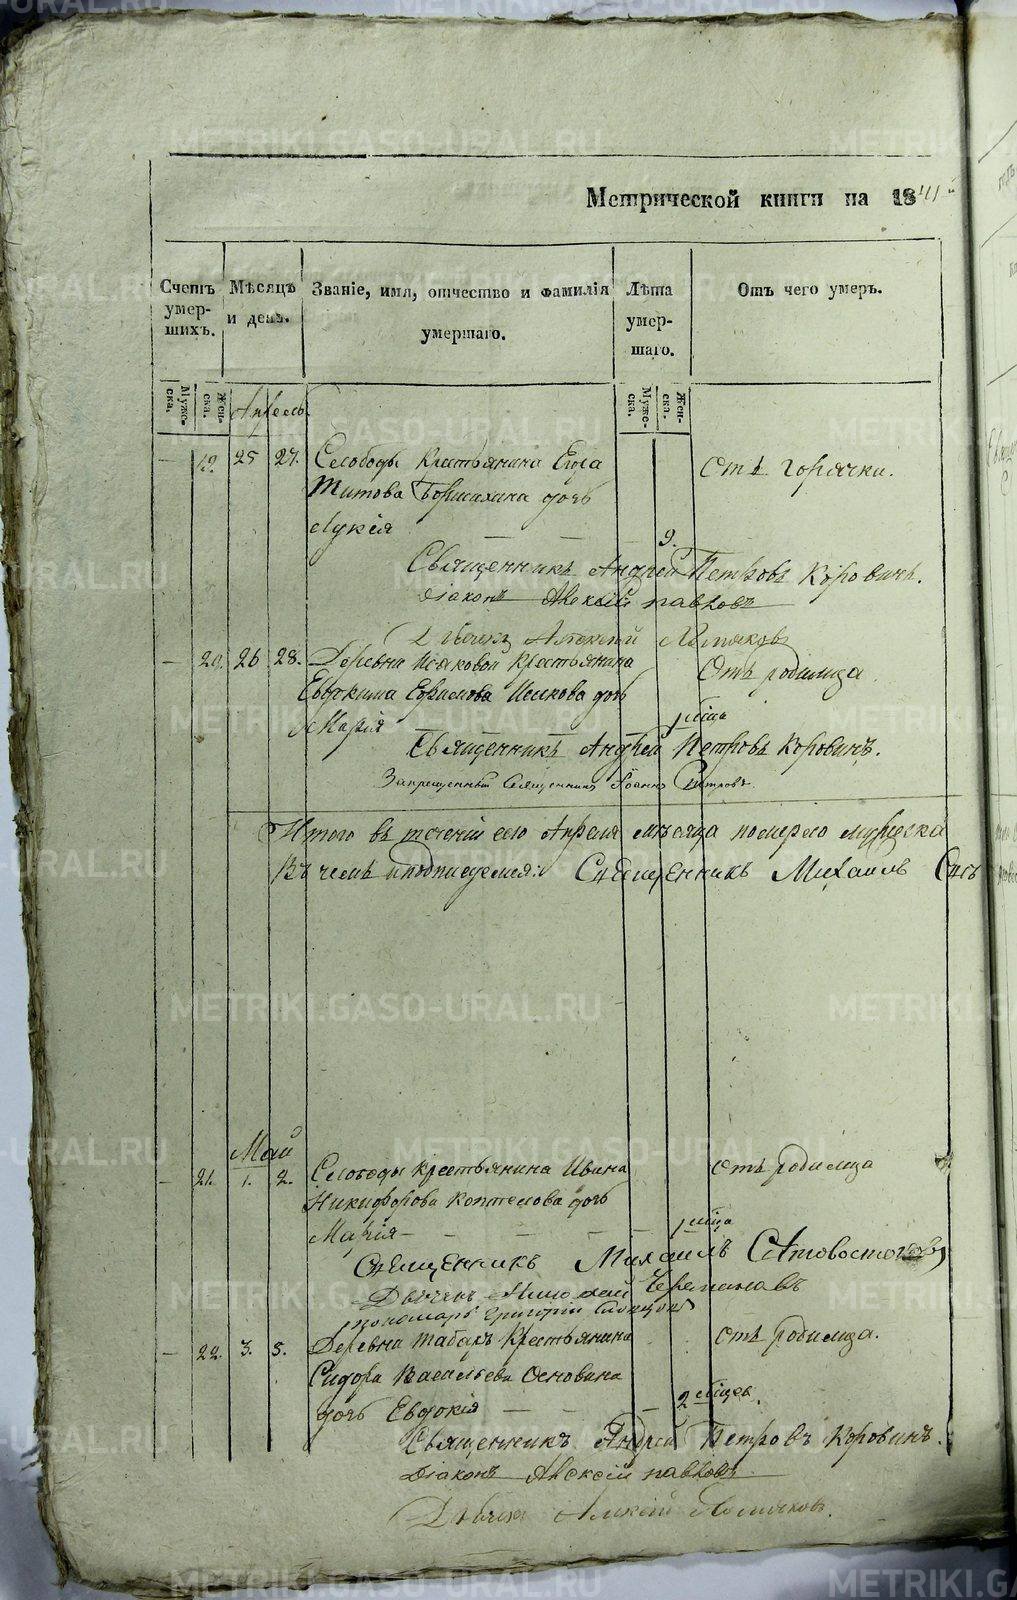 Метрической книги на 1841
Счетъ умерших. Мѣсяцъ и день. Званіе, имя, отчество и фамилія умершаго. Лѣта умершаго. Отъ чего умеръ.
Мужеска. Женска. Мужеска. Женска.
Апрель
19. 25 27. Слободы Крестьянина Егора Отъ горячки.
Титова дочь
Лукія 9.
Священникъ Андрей Петровъ Коровинъ.
Діаконъ Алексій Павловъ
Дьячекъ Алексий
20. 26 28. Деревни Исаковой Крестьянина Отъ родимца
Евдокима Ефимова Исакова дочь
Марія
Священникъ Андрей Петровъ Коровинъ.
Запрещенный Священникъ Іоаннъ Петровъ.
Итого въ теченіи сего Апреля мѣсяца померло мужеска
Въ чемъ и подписуемся: Священникъ Михаилъ
Май
21. 1. 2. Слободы Крестьянина Ивана отъ родимца
Никифорова Коптелова дочь
Марія
Священникъ Михаилъ
Дьячекъ Николай
пономарь Григорій
22. 3. 5. Деревни Крестьянина отъ родимца.
Сидора Васильева Основина
дочь Евдокія 2 мѣсец.
Священникъ Андрей Петровъ Коровинъ.
Діаконъ Алексій Павловъ
Дьячекъ Алексій
METRIKI.GASO-URAL.RU